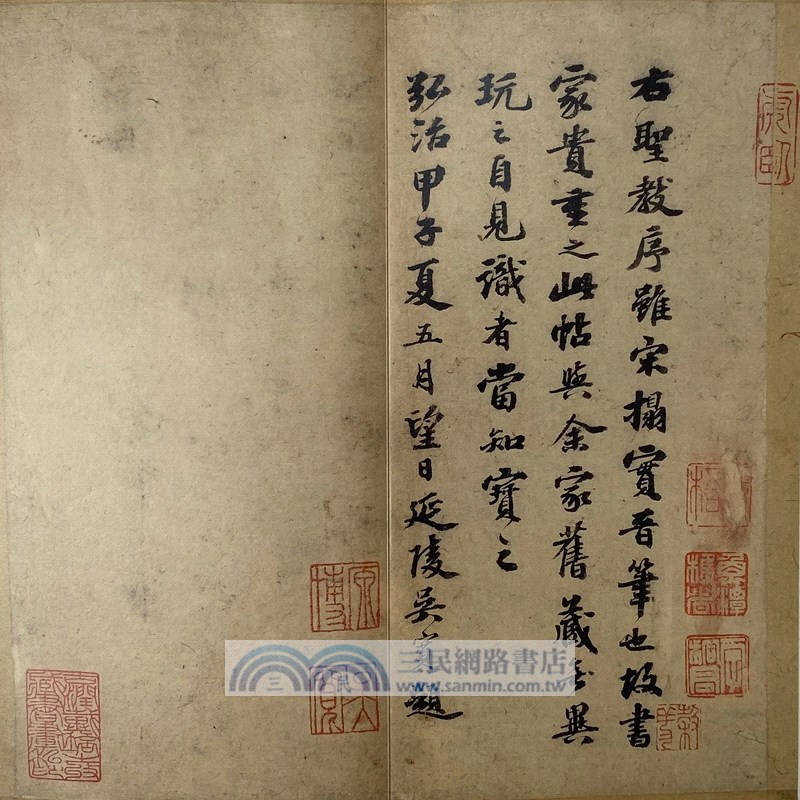 右聖教序雖宋搨實晉筆也故書
家貴重之此帖與余家舊藏無異
玩之自見識者當知寶之
弘治甲子夏五月望日延陵吳寬題
原博
吳寬
三民網路書店
三 民
www.sanmin.com.tw